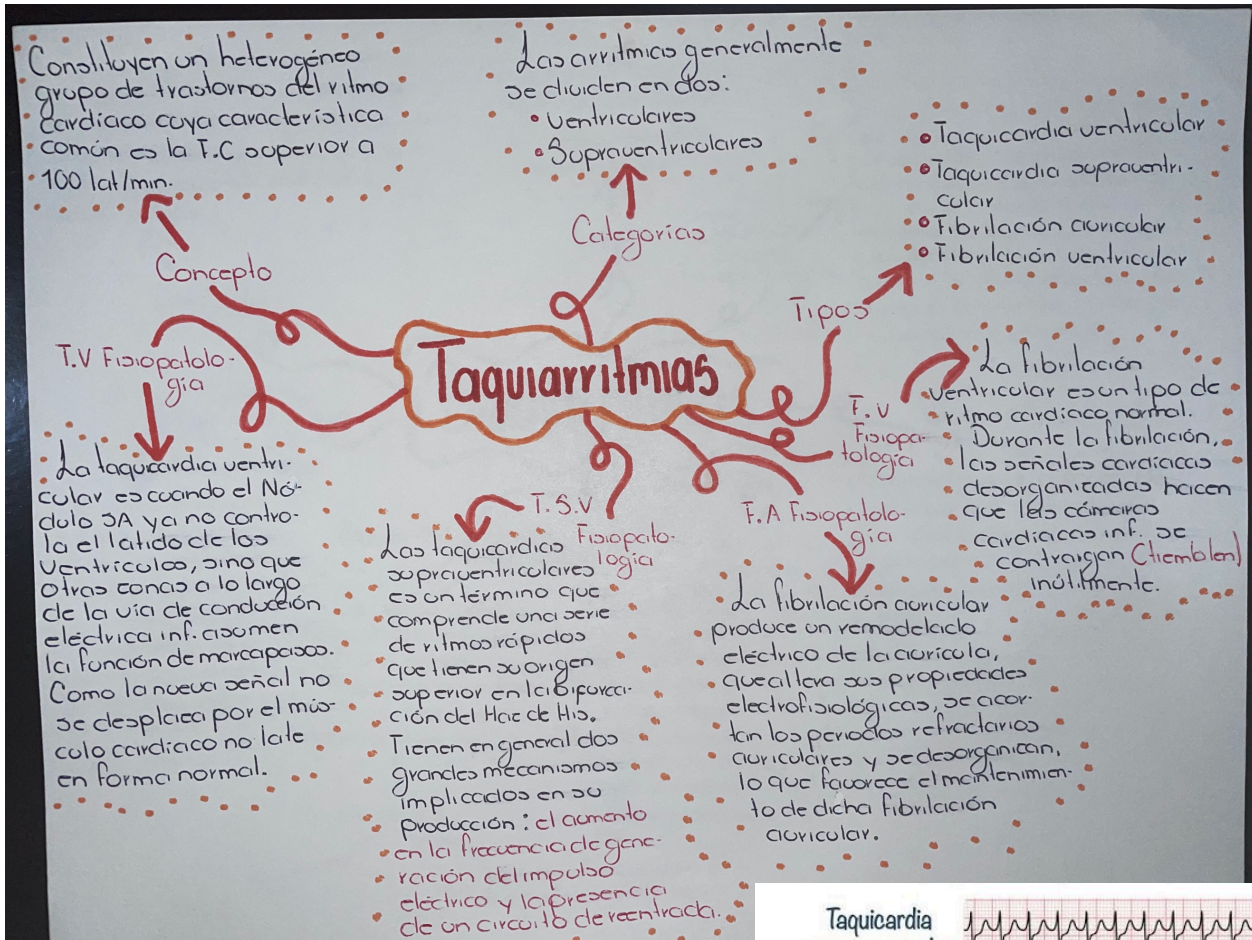 Constituyen un heterogéneo
grupo de trastornos del ritmo
cardiaco cuya característica
común es la F.C superior a
100 lat/min.
Concepto
Las arritmias generalmente
se dividen en dos:
• Ventriculares
• Supraventriculares
Categorías
• Taquicardia ventricular
• Taquicardia supraventri-
cular
• Fibrilación auricular
• Fibrilación ventricular
Tipos
Taquiarritmias
T.V Fisiopatolo-
gía
La taquicardia ventri-
cular es cuando el Nó-
dulo SA ya no contro-
la el latido de los
ventrículos, sino que
otras zonas a lo largo
de la vía de conducción
eléctrica inf. asumen
la función de marcapasos.
Como la nueva señal no
se desplaza por el mús-
culo cardiaco no late
en forma normal.
T.S.V
Fisiopato-
logía
Las taquicardias
supraventriculares
es un término que
comprende una serie
de ritmos rápidos
que tienen su origen
superior en la Bifurca-
ción del Haz de His.
Tienen en general dos
grandes mecanismos
implicados en su
producción: el aumento
en la frecuencia de gene-
ración del impulso
eléctrico y la presencia
de un circuito de reentrada.
F.A Fisiopatolo-
gía
La fibrilación auricular
produce un remodelado
eléctrico de la aurícula,
que altera sus propiedades
electrofisiológicas, se acor-
tan los periodos refractarios
auriculares y se desorganizan,
lo que favorece el mantenimien-
to de dicha fibrilación
auricular.
F.V
Fisiopa-
tología
La fibrilación
ventricular es un tipo de
ritmo cardiaco normal.
Durante la fibrilación,
las señales cardiacas
desorganizadas hacen
que las cámaras
cardiacas inf. se
contraigan (tiemblen)
inútilmente.
Taquicardia